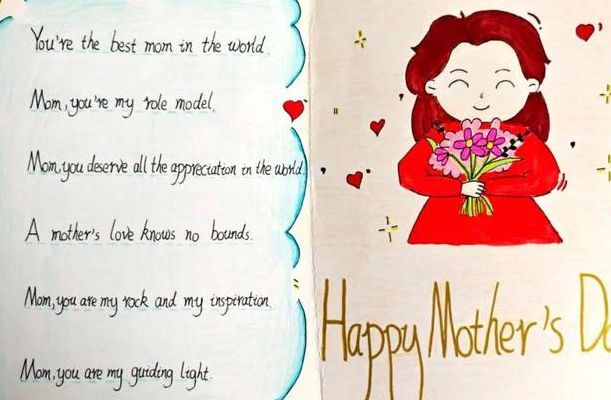 You're the best mom in the world.
Mom, you're my role model.
Mom, you deserve all the appreciation in the world.
A mother's love knows no bounds.
Mom, you are my rock and my inspiration.
Mom, you are my guiding light.
Happy Mother's Da